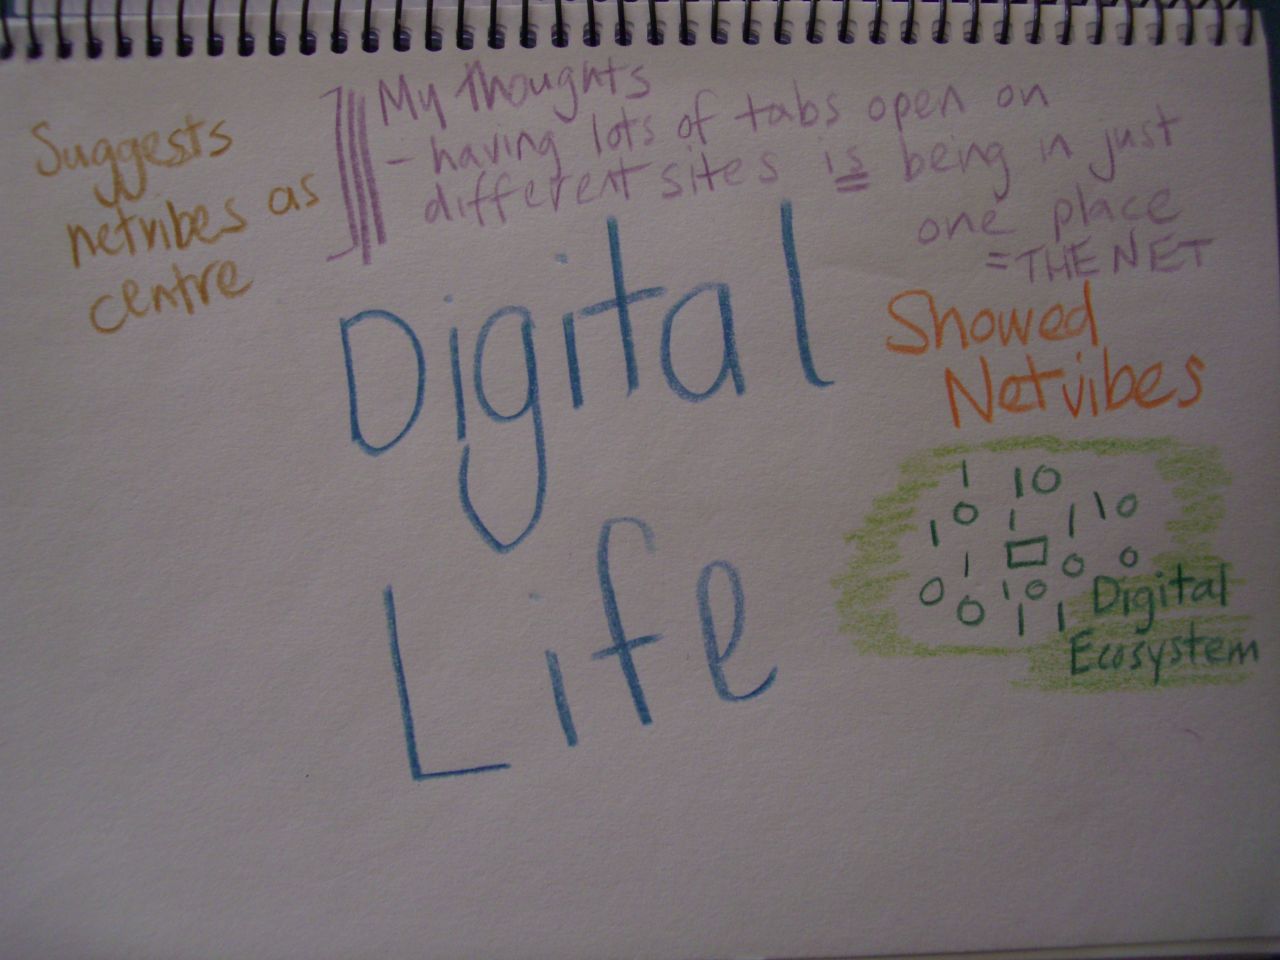 Suggests
netvibes as
centre
My thoughts
- having lots of tabs open on
different sites is being in just
one place
= THE NET
Digital
Life
Showed
Netvibes
1 10
1 0 1 1 1 0
1 0 0
0 0 1 0 1 1
Digital
Ecosystem